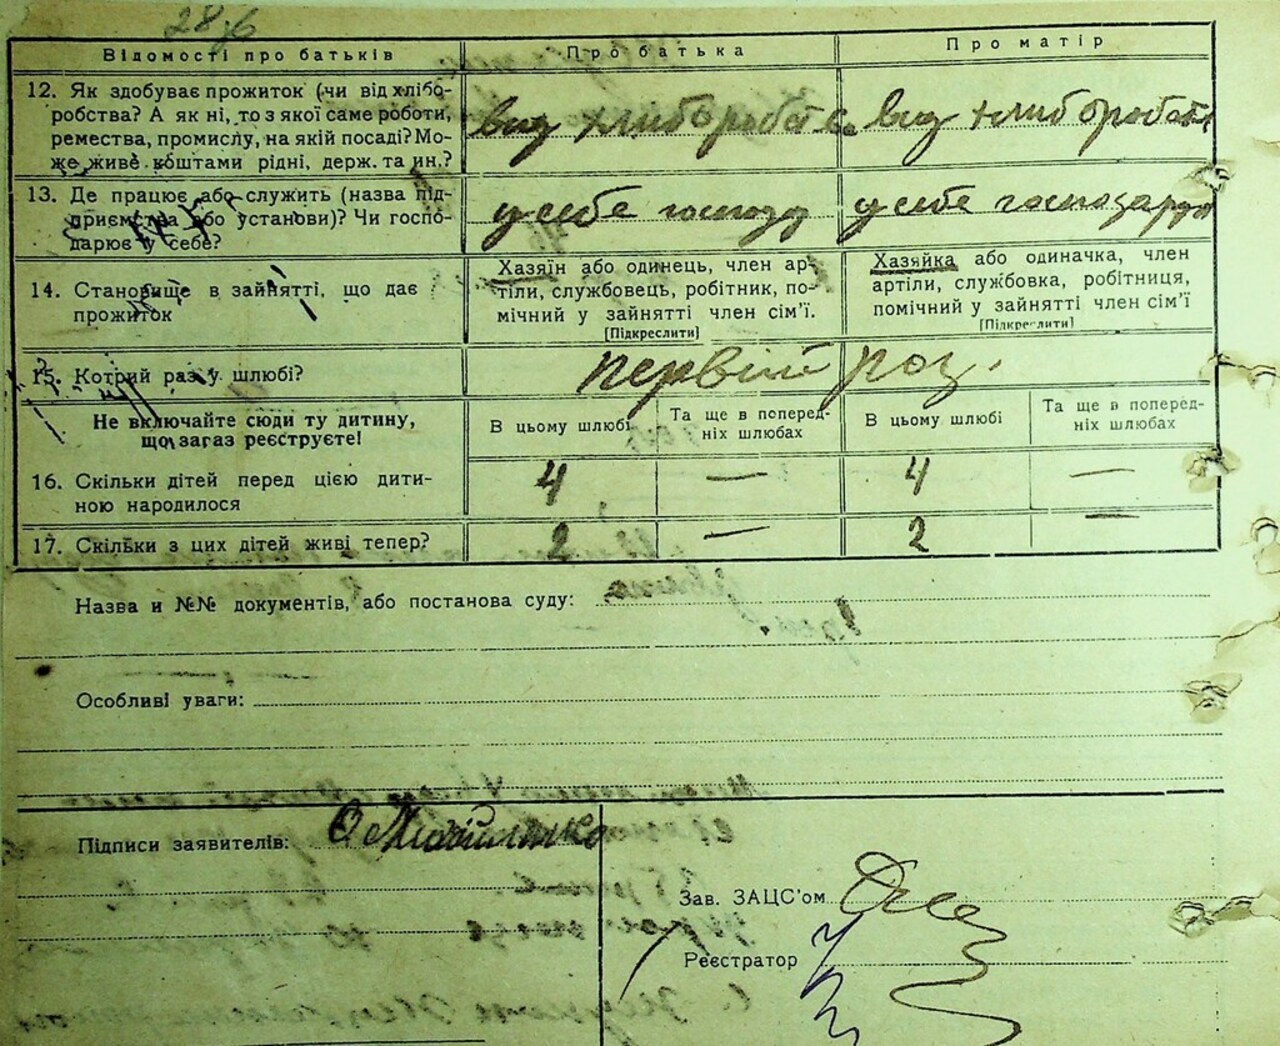 28
Відомості про батьків
Про батька
Про матір
12. Як здобуває прожиток (чи від хлібо-
робства? А як ні, то з якої саме роботи,
ремества, промислу, на якій посаді? Мо-
же живе коштами рідні, держ. та ин.?
вид хлиборобства
вид хлиборобства
13. Де працює або служить (назва під-
приємства або установи)? Чи госпо-
дарює у себе?
у себе господ
у себе господарул
14. Становище в зайнятті, що дає
прожиток
Хазяїн або одинець, член ар-
тіли, службовець, робітник, по-
мічний у зайнятті член сім’ї.
[Підкреслити]
Хазяйка або одиначка, член
артіли, службовка, робітниця,
помічний у зайнятті член сім’ї
[Підкреслити]
15. Котрий раз у шлюбі?
первій раз.
Не включайте сюди ту дитину,
що загаз реєструєте!
В цьому шлюбі
Та ще в поперед-
ніх шлюбах
В цьому шлюбі
Та ще в поперед-
ніх шлюбах
16. Скільки дітей перед цією дити-
ною народилося
4 — 4 —
17. Скільки з цих дітей живі тепер?
2 — 2 —
Назва и №№ документів, або постанова суду:
Особливі уваги:
Підписи заявителів:
Зав. ЗАЦС’ом
Реєстратор